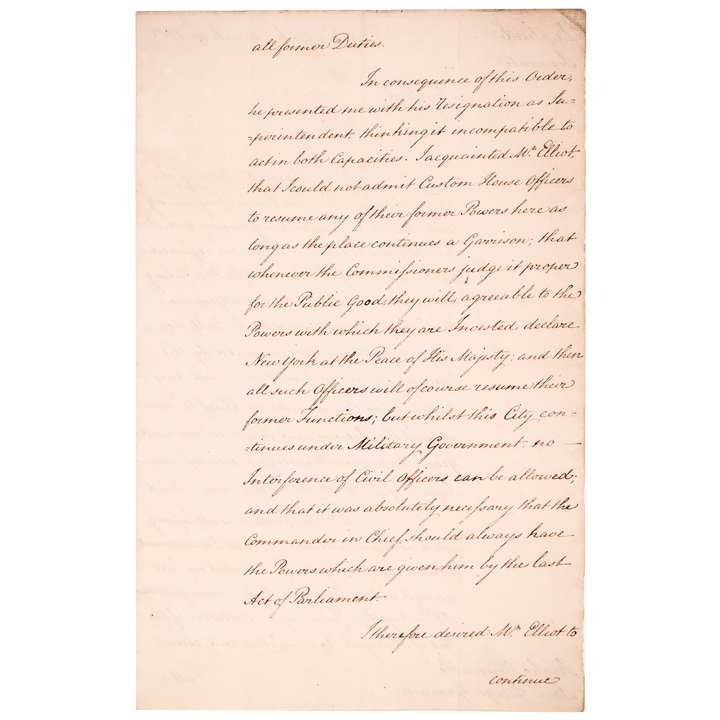 all former Duties.
In consequence of this Order,
he presented me with his Resignation as Su-
-perintendent, thinking it incompatible to
act in both Capacities. I acquainted Mr. Elliot,
that I could not admit Custom House Officers
to resume any of their former Powers here as
long as the place continues a Garrison; that
whenever the Commissioners judge it proper
for the Public Good, they will, agreeable to the
Powers with which they are Invested declare
New York at the Peace of His Majesty; and then
all such Officers will of course resume their
former Functions; but whilst this City con=
=tinues under Military Government, no —
Interference of Civil Officers can be allowed;
and that it was absolutely necessary that the
Commander in Chief should always have
the Powers which are given him by the last
Act of Parliament
I therefore desired Mr. Elliot to
continue